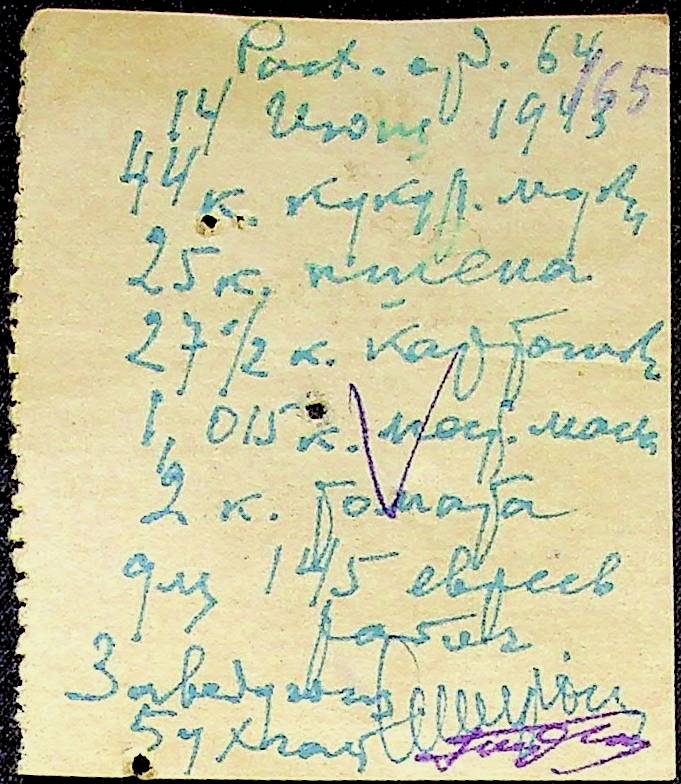 64/65
14 Июня 1943
44 к. кукур. муки
25 к. пшена
27 1/2 к. картошки
1,015 к. мас.
2 к. томата
для 145 евреев
рабоч
Заведующ